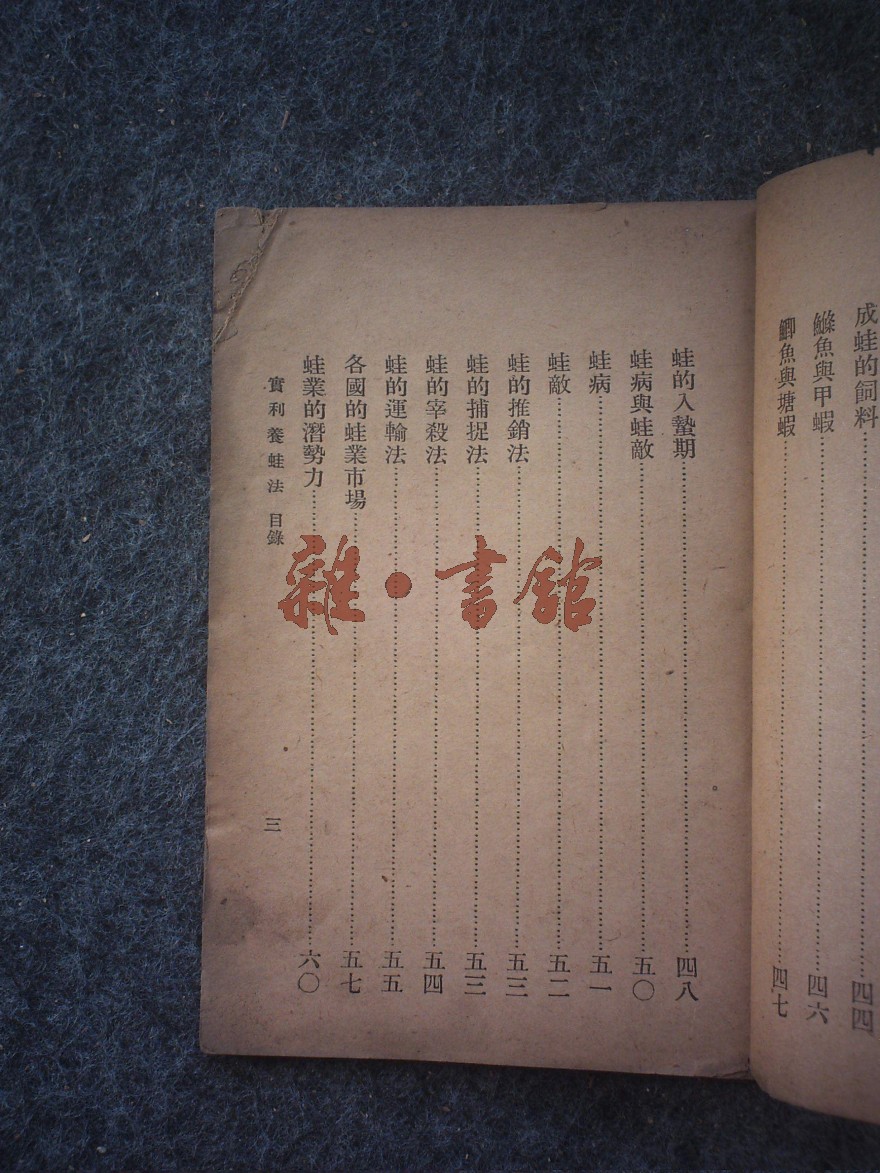 成蛙的飼料⋯⋯四四
鰷魚與甲蝦⋯⋯四六
鯽魚與塘蝦⋯⋯四七
蛙的入蟄期⋯⋯四八
蛙病與蛙敵⋯⋯五〇
蛙病⋯⋯五一
蛙敵⋯⋯五二
蛙的推銷法⋯⋯五三
蛙的捕捉法⋯⋯五三
蛙的宰殺法⋯⋯五四
蛙的運輸法⋯⋯五五
各國的蛙業市場⋯⋯五七
蛙業的潛勢力⋯⋯六〇
實利養蛙法 目錄 三
雜·書館